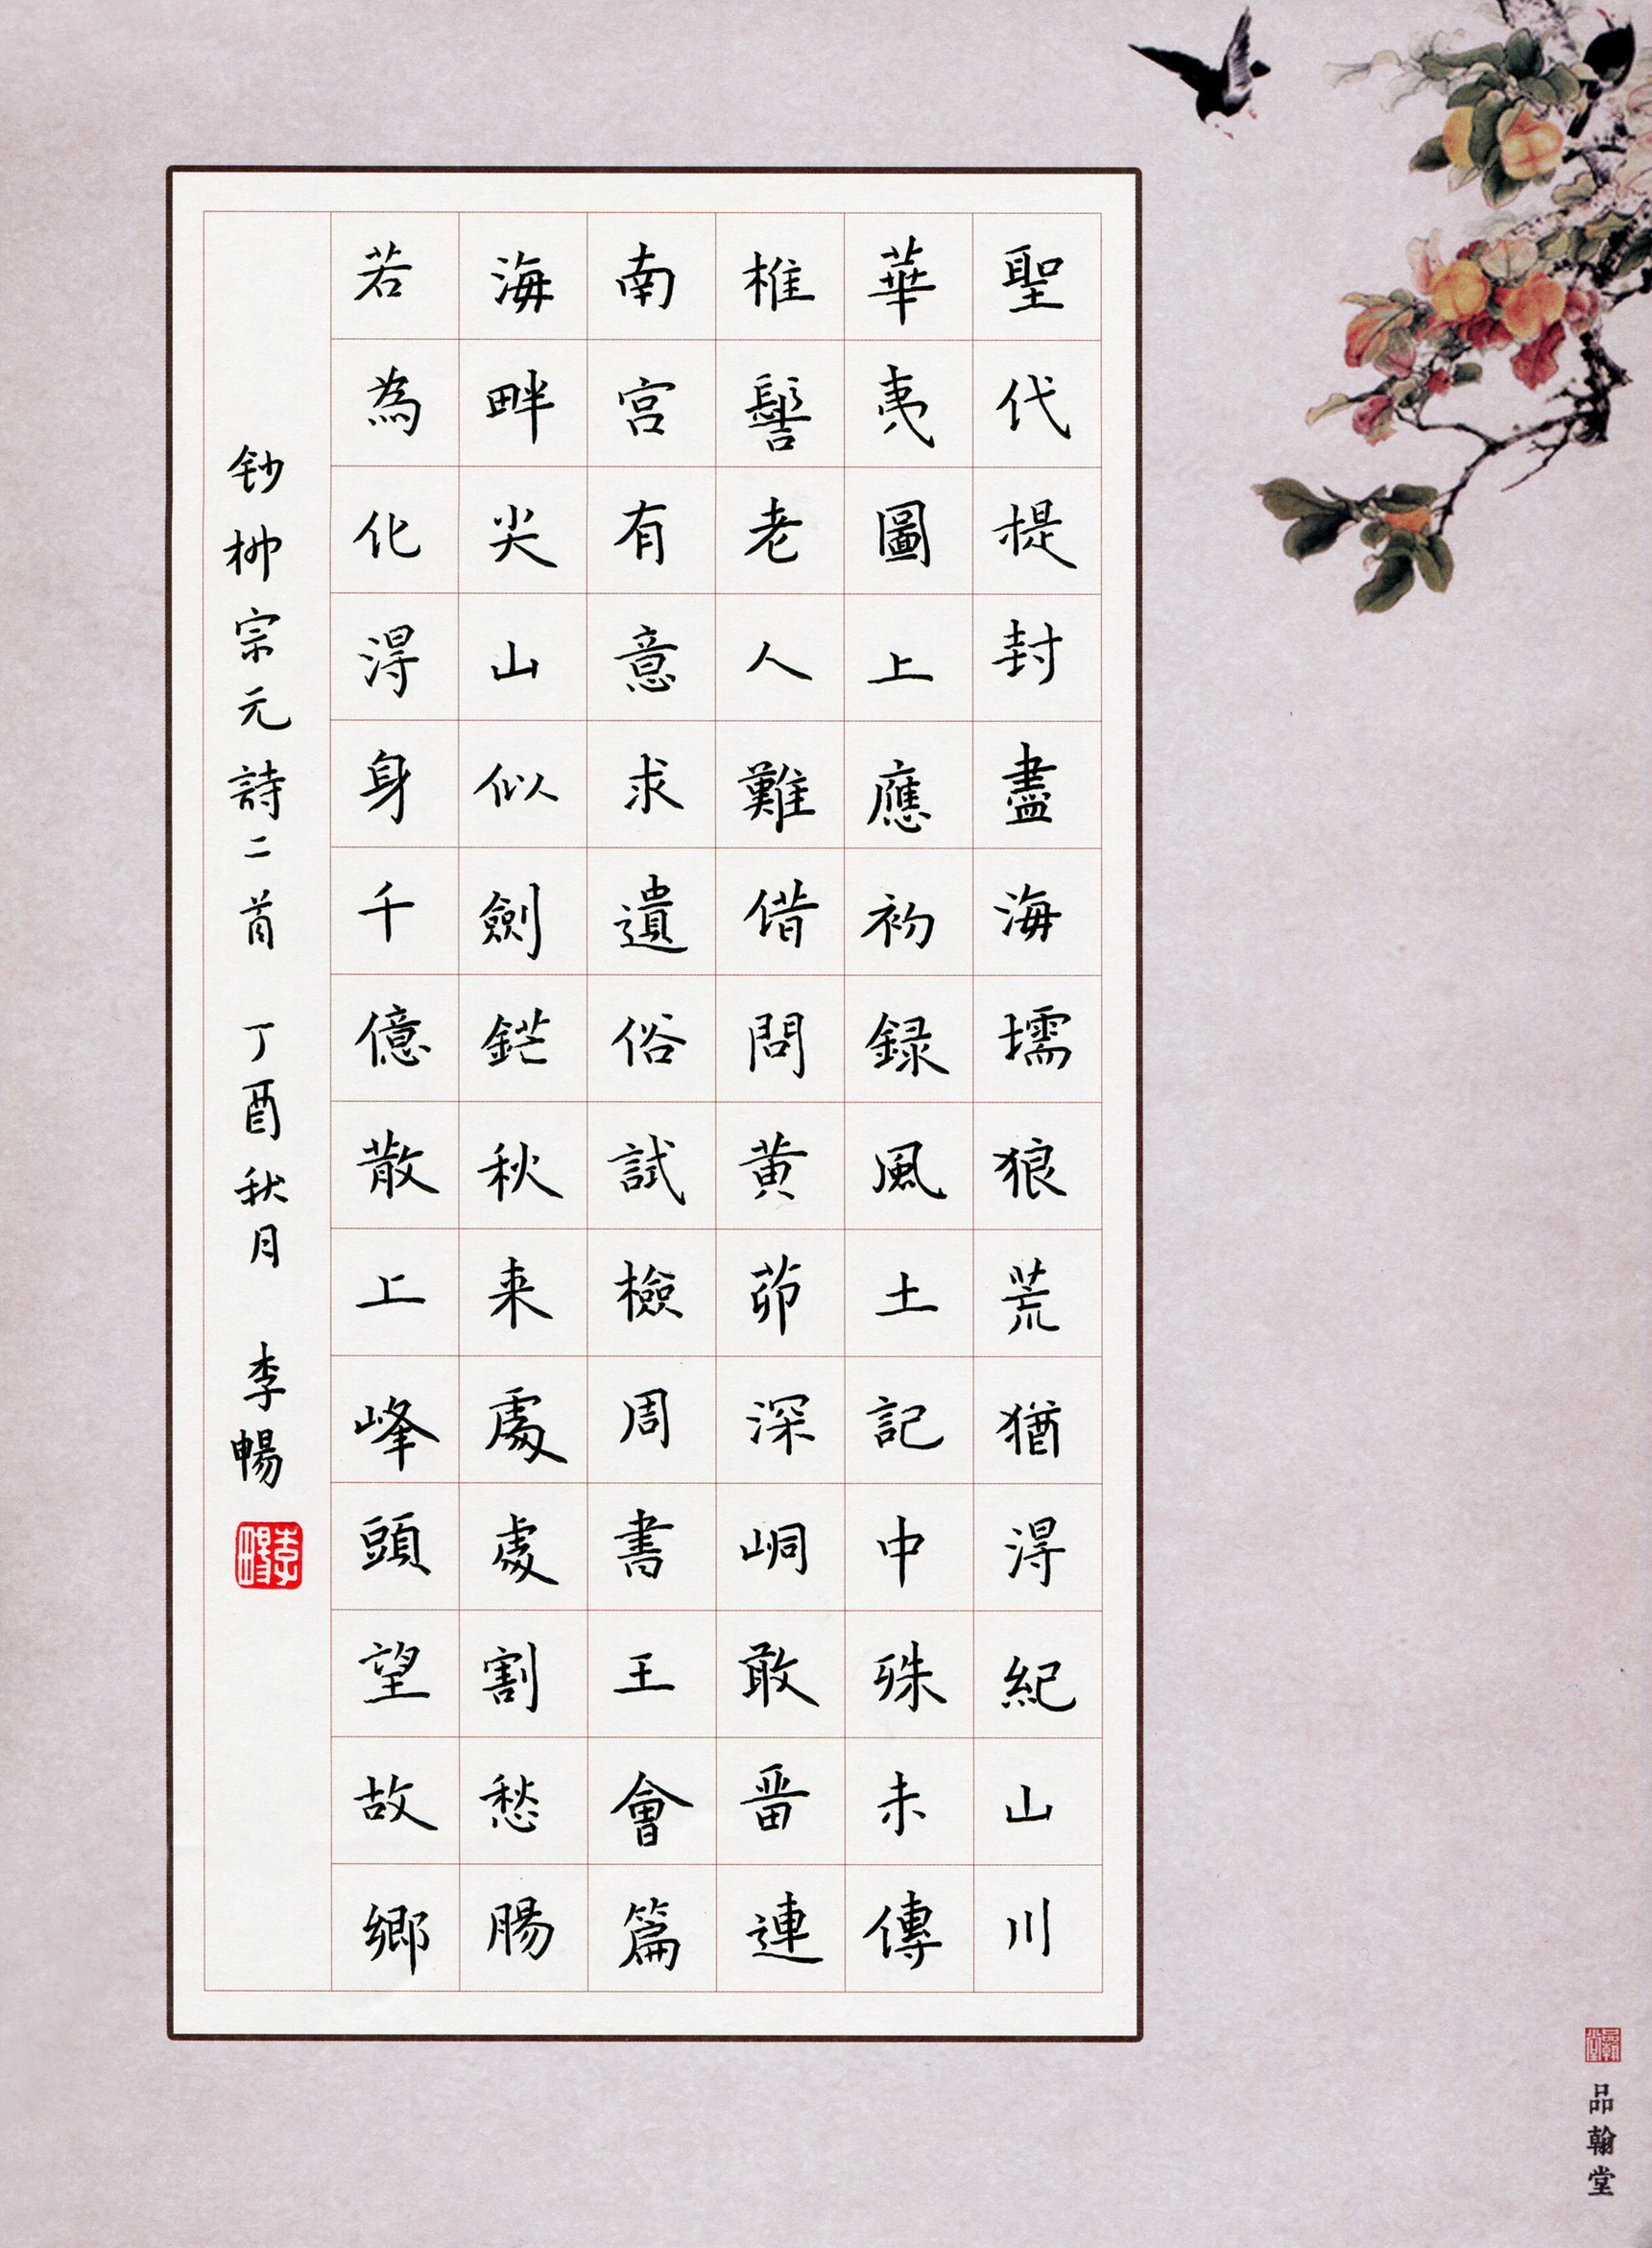 聖代提封盡海壖狼荒猶得紀山川
華夷圖上應初録風土記中殊未傳
椎髻老人難借問黄茆深峒敢畱連
南宫有意求遺俗試檢周書王會篇
海畔尖山似劍鋩秋来處處割愁腸
若為化得身千億散上峰頭望故鄉
鈔柳宗元詩二首 丁酉秋月 李暢
李暢
品翰堂
品翰堂